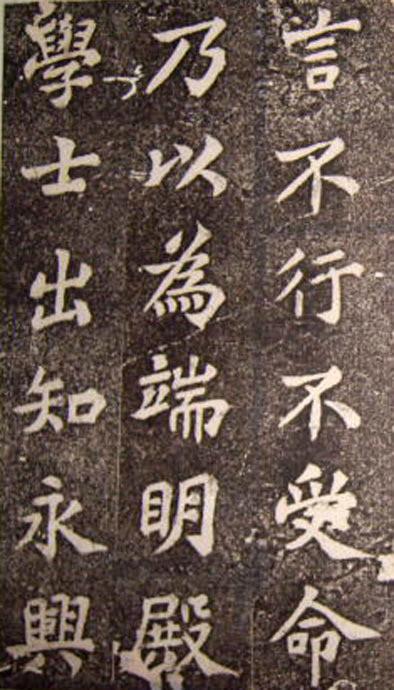 言不行不受命
乃以為端明殿
學士出知永興